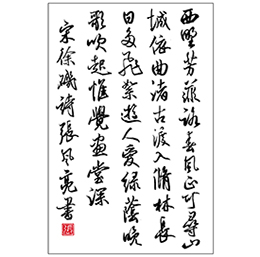 西野芳菲路春風正可尋山
城依曲渚古渡入脩林長
日多飛絮遊人愛綠蔭晚
歌吹起惟覺畫堂深
宋徐璣詩張風亮書